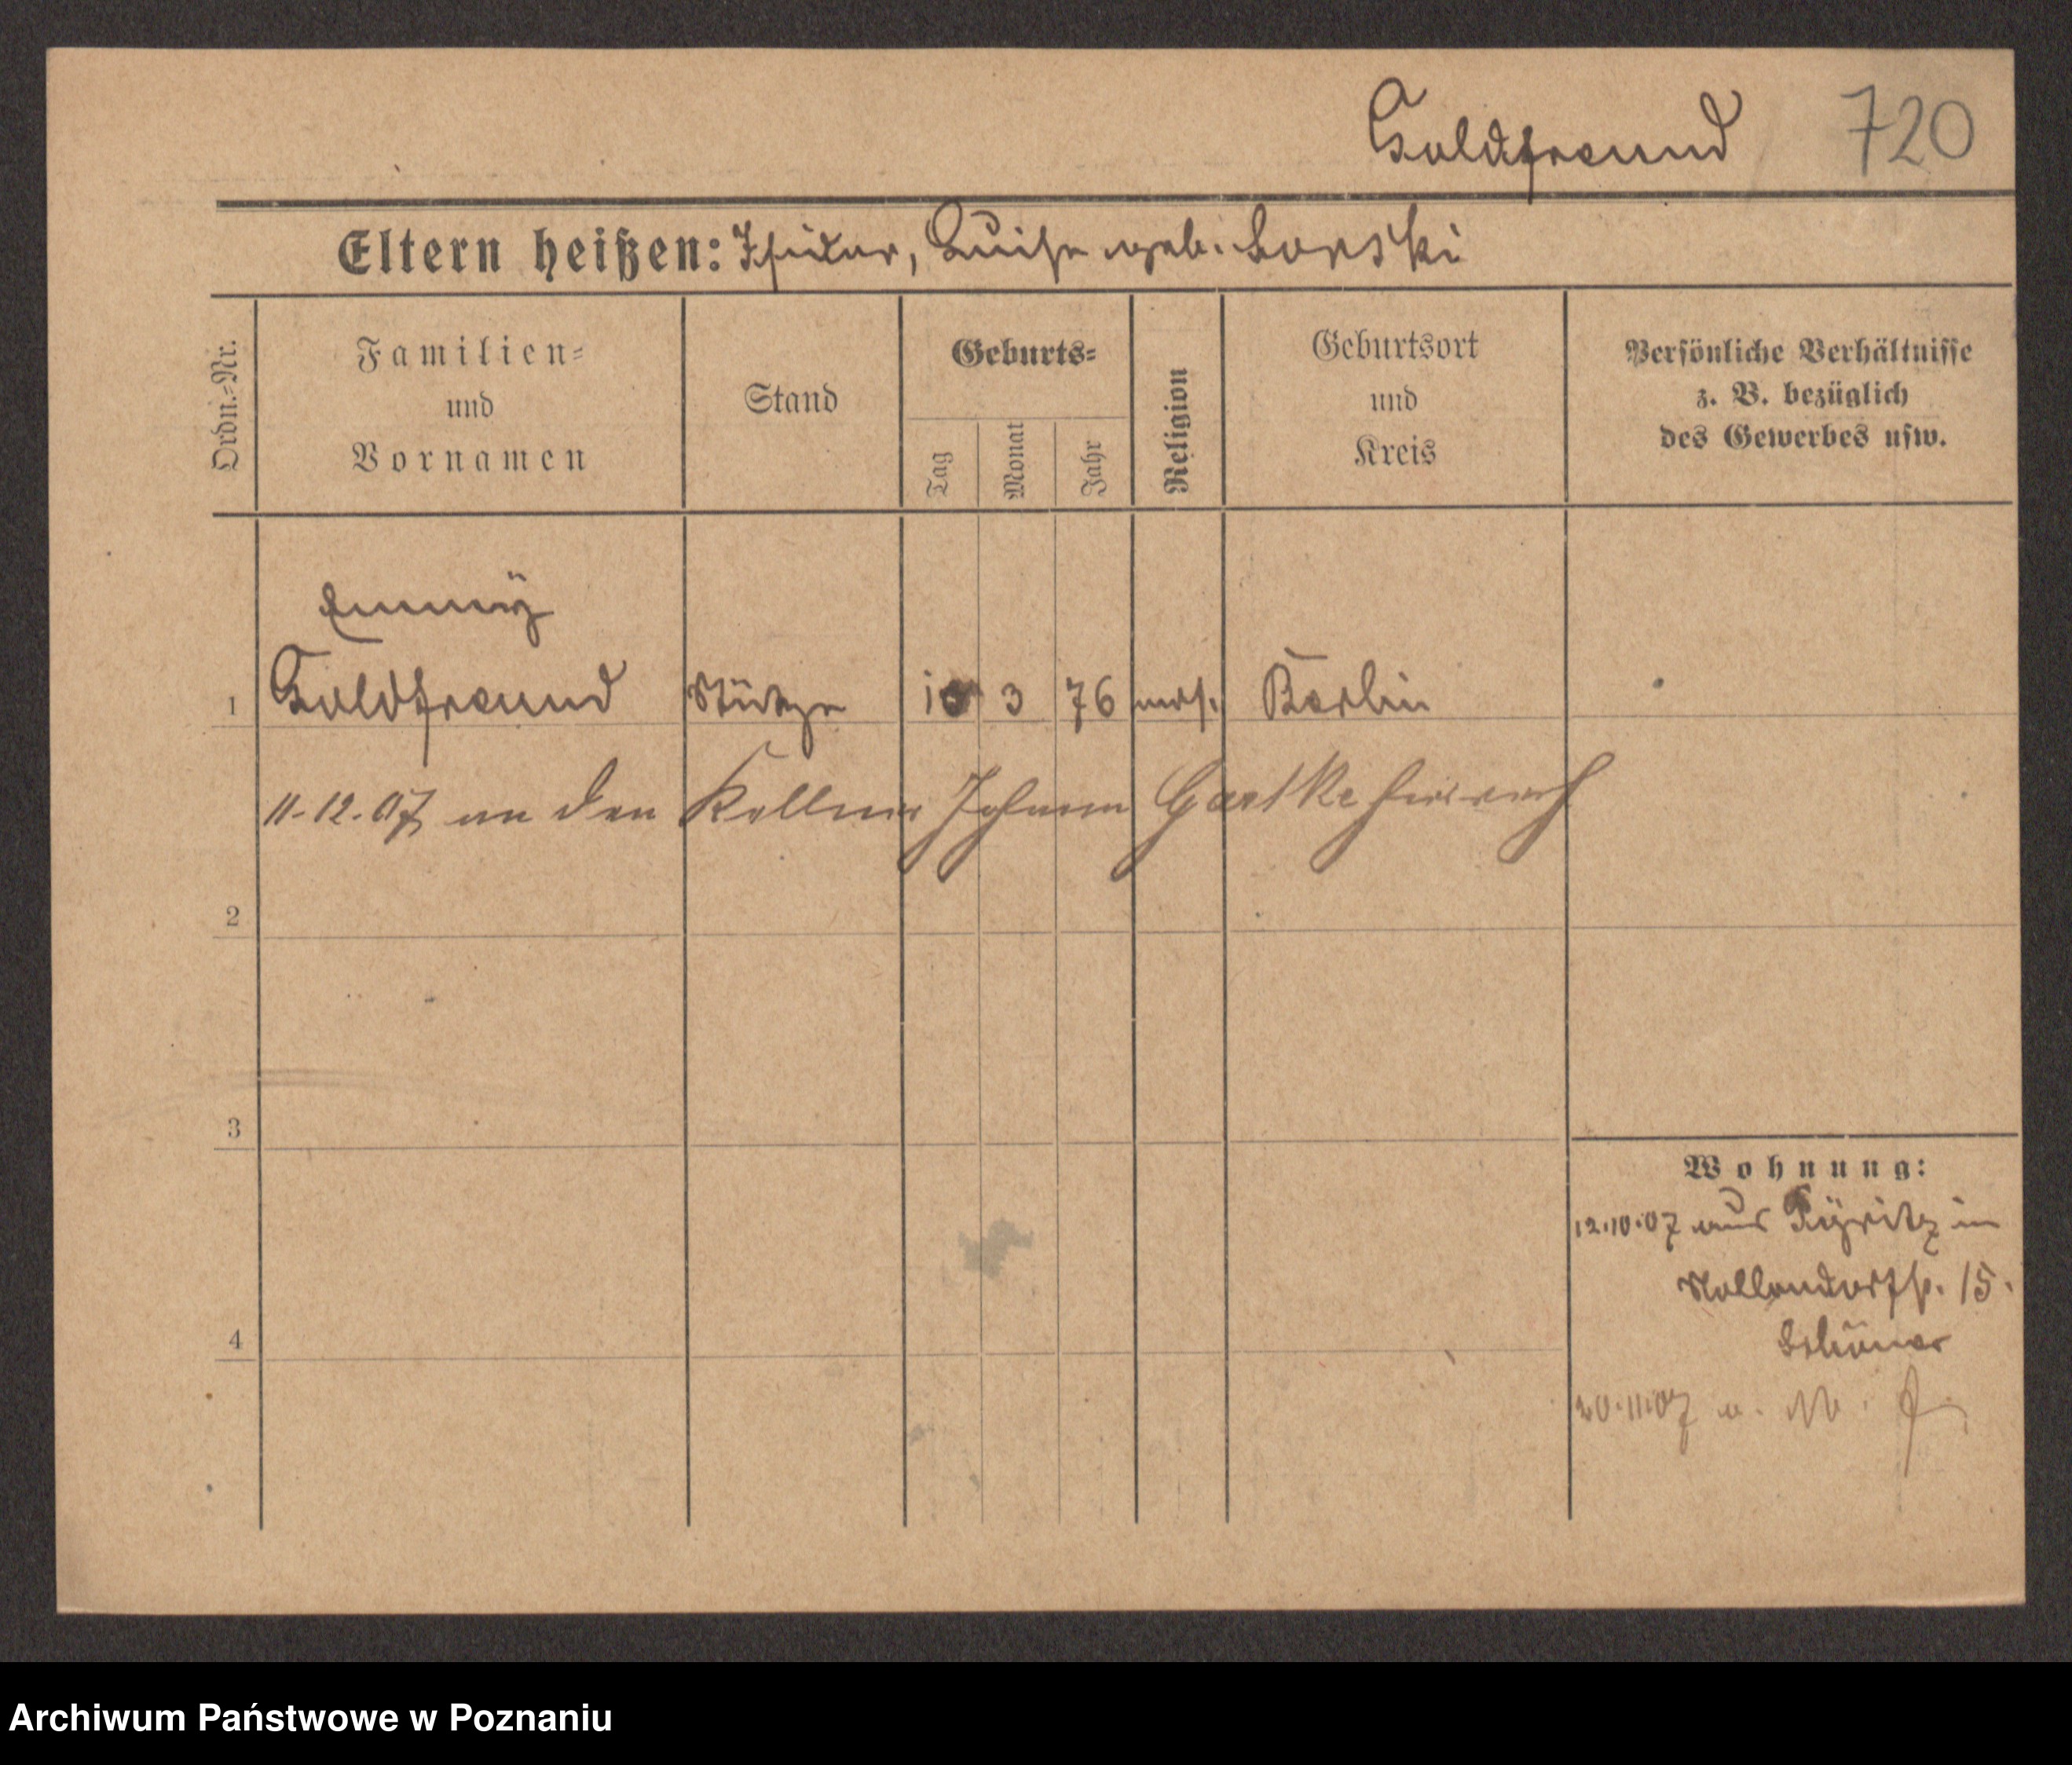 Goldfreund 720
Eltern heißen: Isidor, Luise geb. Lorski
Ordn.-Nr.
Familien-
und
Vornamen
Stand
Geburts-
Tag
Monat
Jahr
Religion
Geburtsort
und
Kreis
Persönliche Verhältnisse
z. B. bezüglich
des Gewerbes usw.
Emmÿ
1 Goldfreund Stütze 10 3 76 mos. Berlin
11.12.07 an den Kellner Johann Gartke
2
3
4
Wohnung:
12.10.07 aus Pÿritz in
Nollendorfstr. 15.
20.11.07
Archiwum Państwowe w Poznaniu